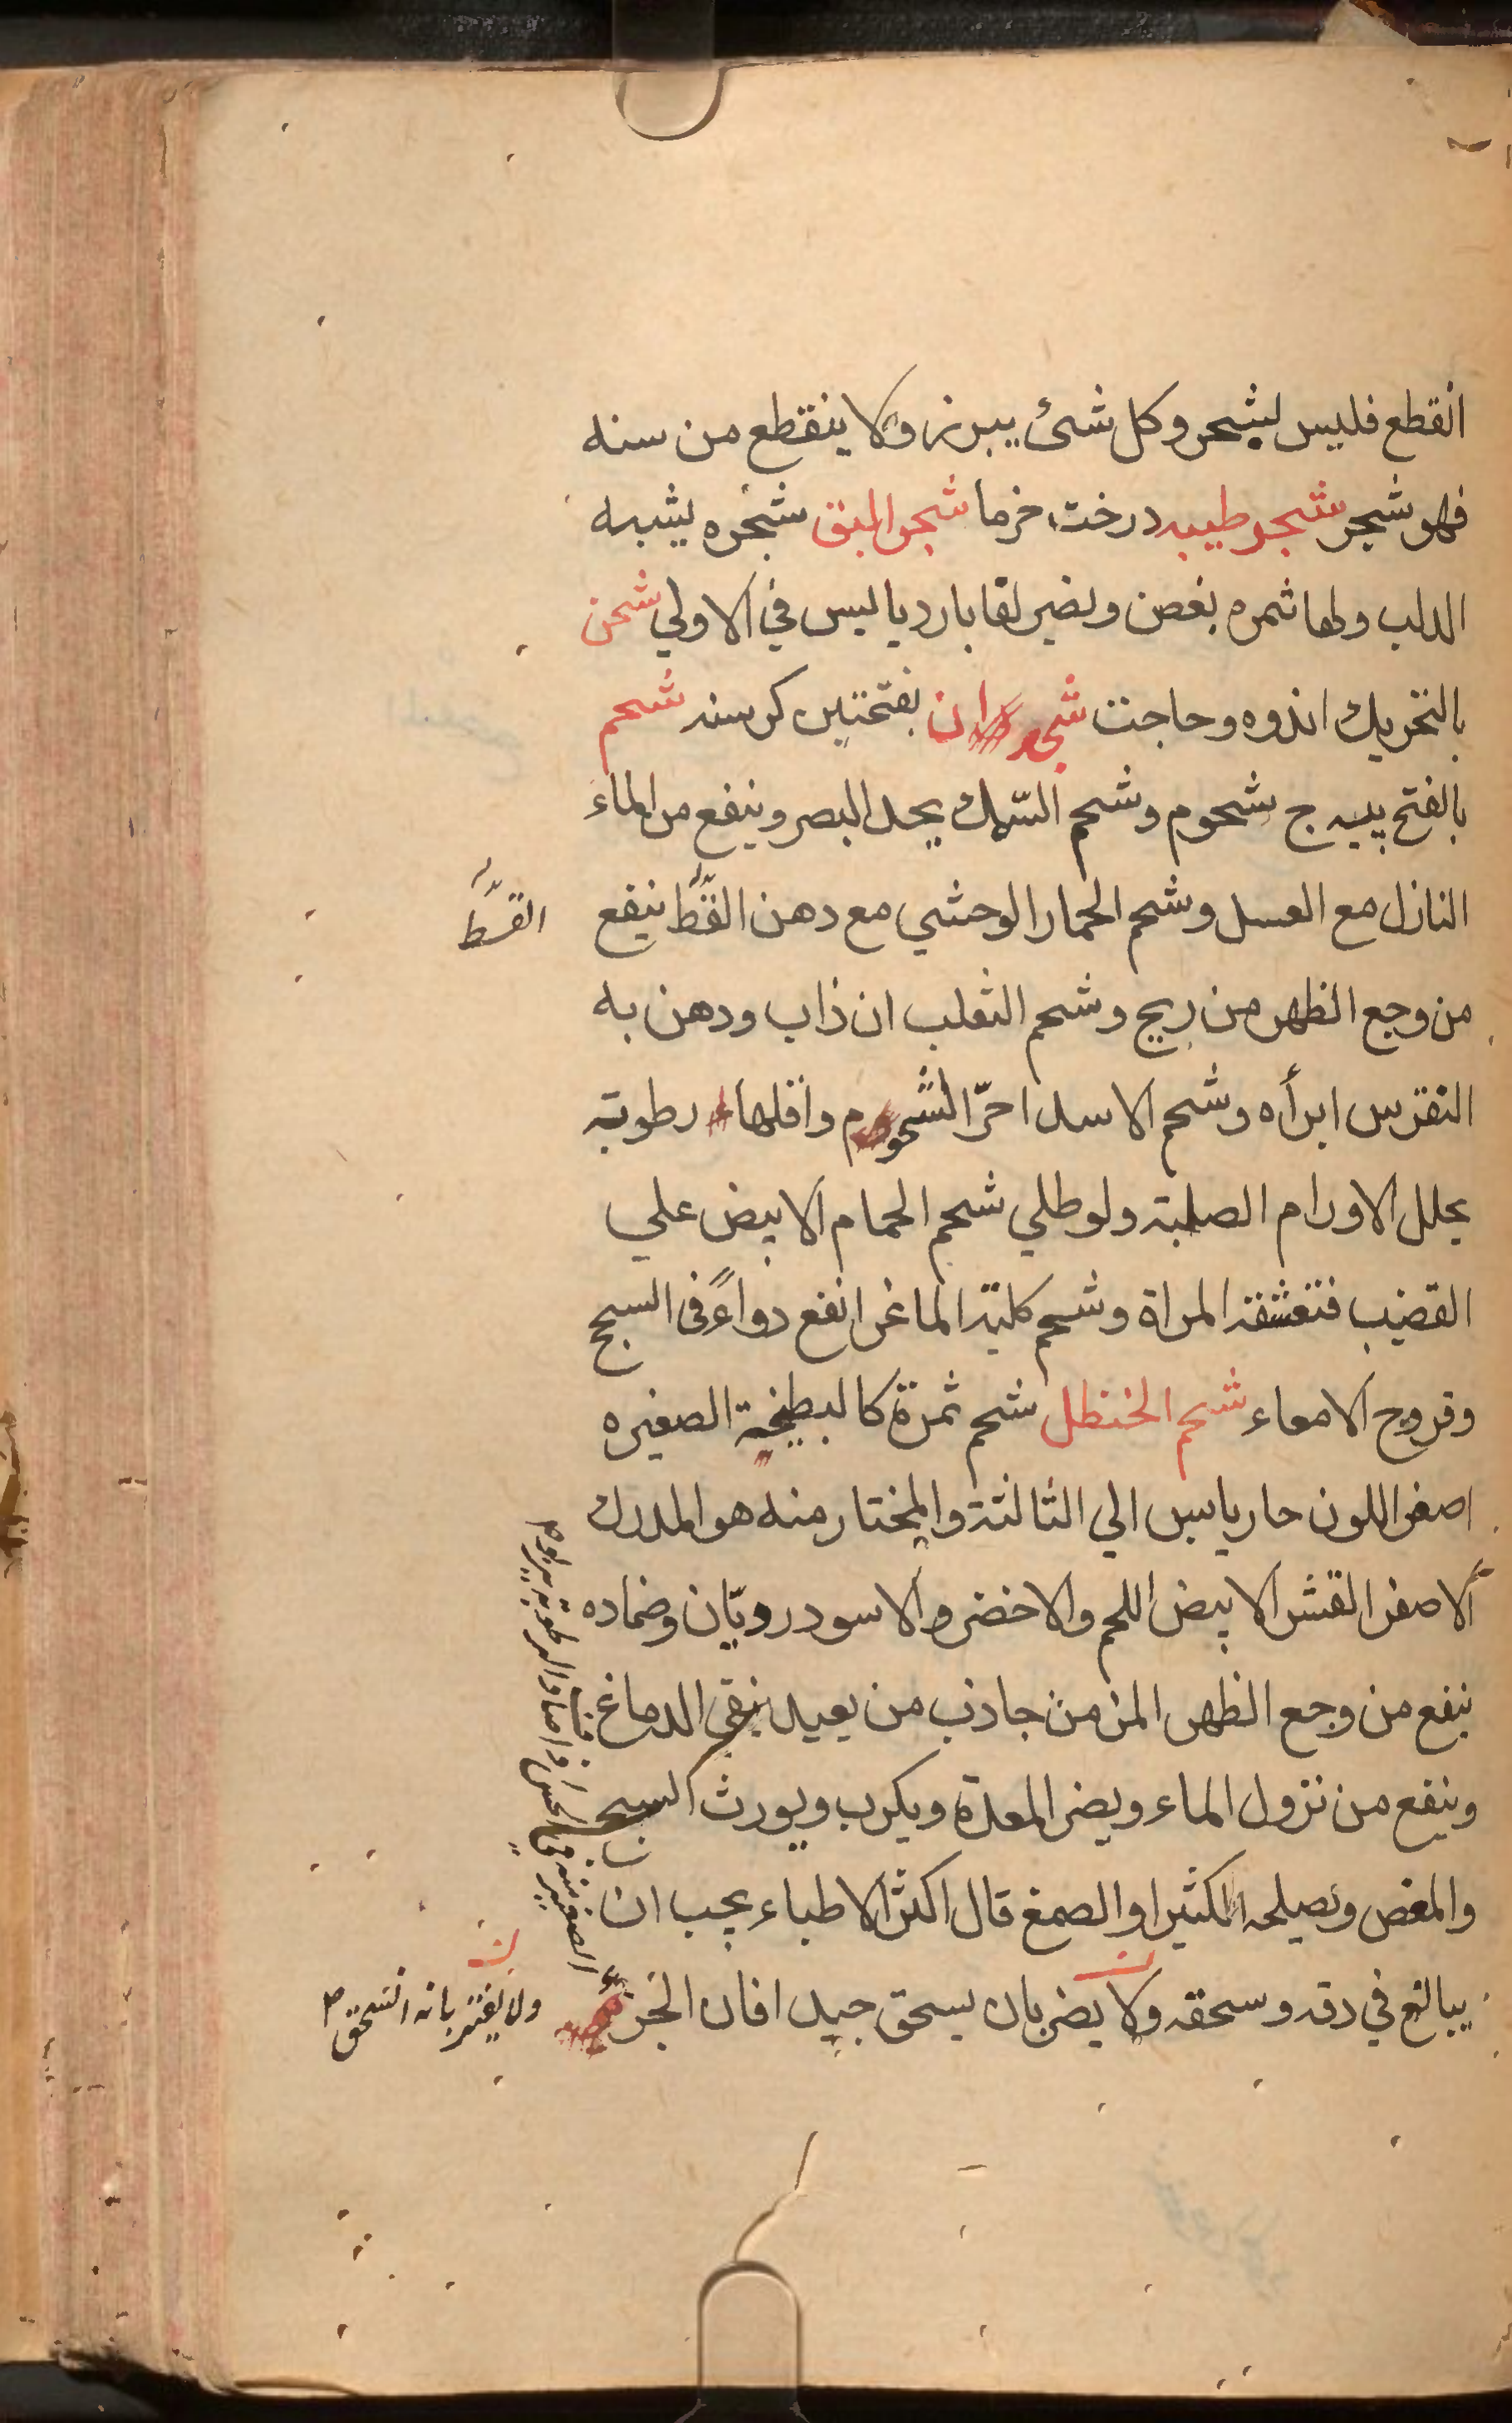 انقطع فليس لشجر وكل شئ يبرز ولا ينقطع من سنه
فهو شجر شجر طيبه درخت خرما شجر البق شجره يشبه
الدلب ولها ثمره بغصن ويضير لقا بارد يا ليس في الاولي شحن
بالتحريك اندوه وحاجت شجر ان بفتحتين كرسنه شحم
بالفتح پيه ج شحوم وشحم السّمك يحد البصر وينفع من الماء
النازل مع العسل وشحم الحمار الوحشي مع دهن القّط ينفع
القسّط
من وجع الظهر من ريح وشحم الثعلب ان ذاب ودهن به
النقرس ابرأه وشحم الاسد احرّ الشحوم واقلها رطوبته
يحلل الاورام الصلبة ولو طلي شحم الحمام الابيض علي
القضيب فتعشقه المراة وشحم كلية الماغر انفع دواءً في السبج
وقروح الامعاء شحم الخنظل شحم ثمرة كالبطيخة الصغيره
اصفر اللون حار يابس الي الثالثة والمختار منه هو المدرك
ألاصفر القشر الابيض اللحم والاخضر والاسود رويّان وضماده
ينفع من وجع الظهر المزمن جاذب من بعيد ينقي الدماغ
وينفع من نزول الماء ويضر المعدة ويكرب ويورث السبج
والمغص ويصلحه الكثيرا والصمغ قال اكثر الاطباء يجب ان
يبالغ في دقه وسحقه ولا يضر بان يسحق جيد افان الجزء
الصغير منه في الحس اذا صادف الرطوبة يربوم
ولا يغتر بانه انسحق م